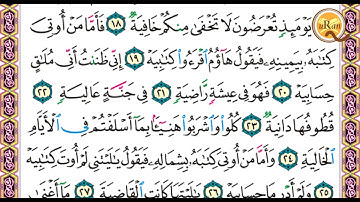 يَوْمَئِذٍ تُعْرَضُونَ لَا تَخْفَىٰ مِنكُمْ خَافِيَةٌ ١٨ فَأَمَّا مَنْ أُوتِيَ
كِتَابَهُ بِيَمِينِهِ فَيَقُولُ هَاؤُمُ اقْرَءُوا كِتَابِيَهْ ١٩ إِنِّي ظَنَنتُ أَنِّي مُلَاقٍ
حِسَابِيَهْ ٢٠ فَهُوَ فِي عِيشَةٍ رَّاضِيَةٍ ٢١ فِي جَنَّةٍ عَالِيَةٍ ٢٢
قُطُوفُهَا دَانِيَةٌ ٢٣ كُلُوا وَاشْرَبُوا هَنِيئًا بِمَا أَسْلَفْتُمْ فِي الْأَيَّامِ
الْخَالِيَةِ ٢٤ وَأَمَّا مَنْ أُوتِيَ كِتَابَهُ بِشِمَالِهِ فَيَقُولُ يَا لَيْتَنِي لَمْ أُوتَ كِتَابِيَهْ
٢٥ وَلَمْ أَدْرِ مَا حِسَابِيَهْ ٢٦ يَا لَيْتَهَا كَانَتِ الْقَاضِيَةَ ٢٧ مَا أَغْنَىٰ